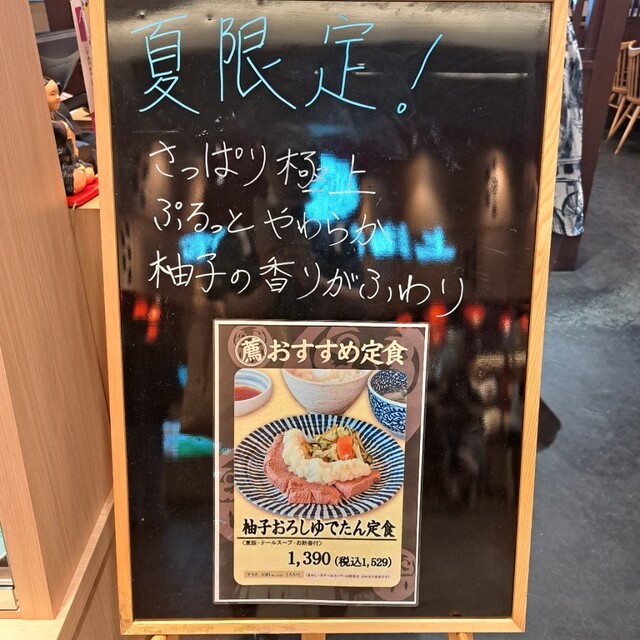 夏限定!
さっぱり極上
ぷるっとやわらか
柚子の香りがふわり
薦おすすめ定食
柚子おろしゆでたん定食
〈麦飯・テールスープ・お新香付〉
1,390(税込1,529)